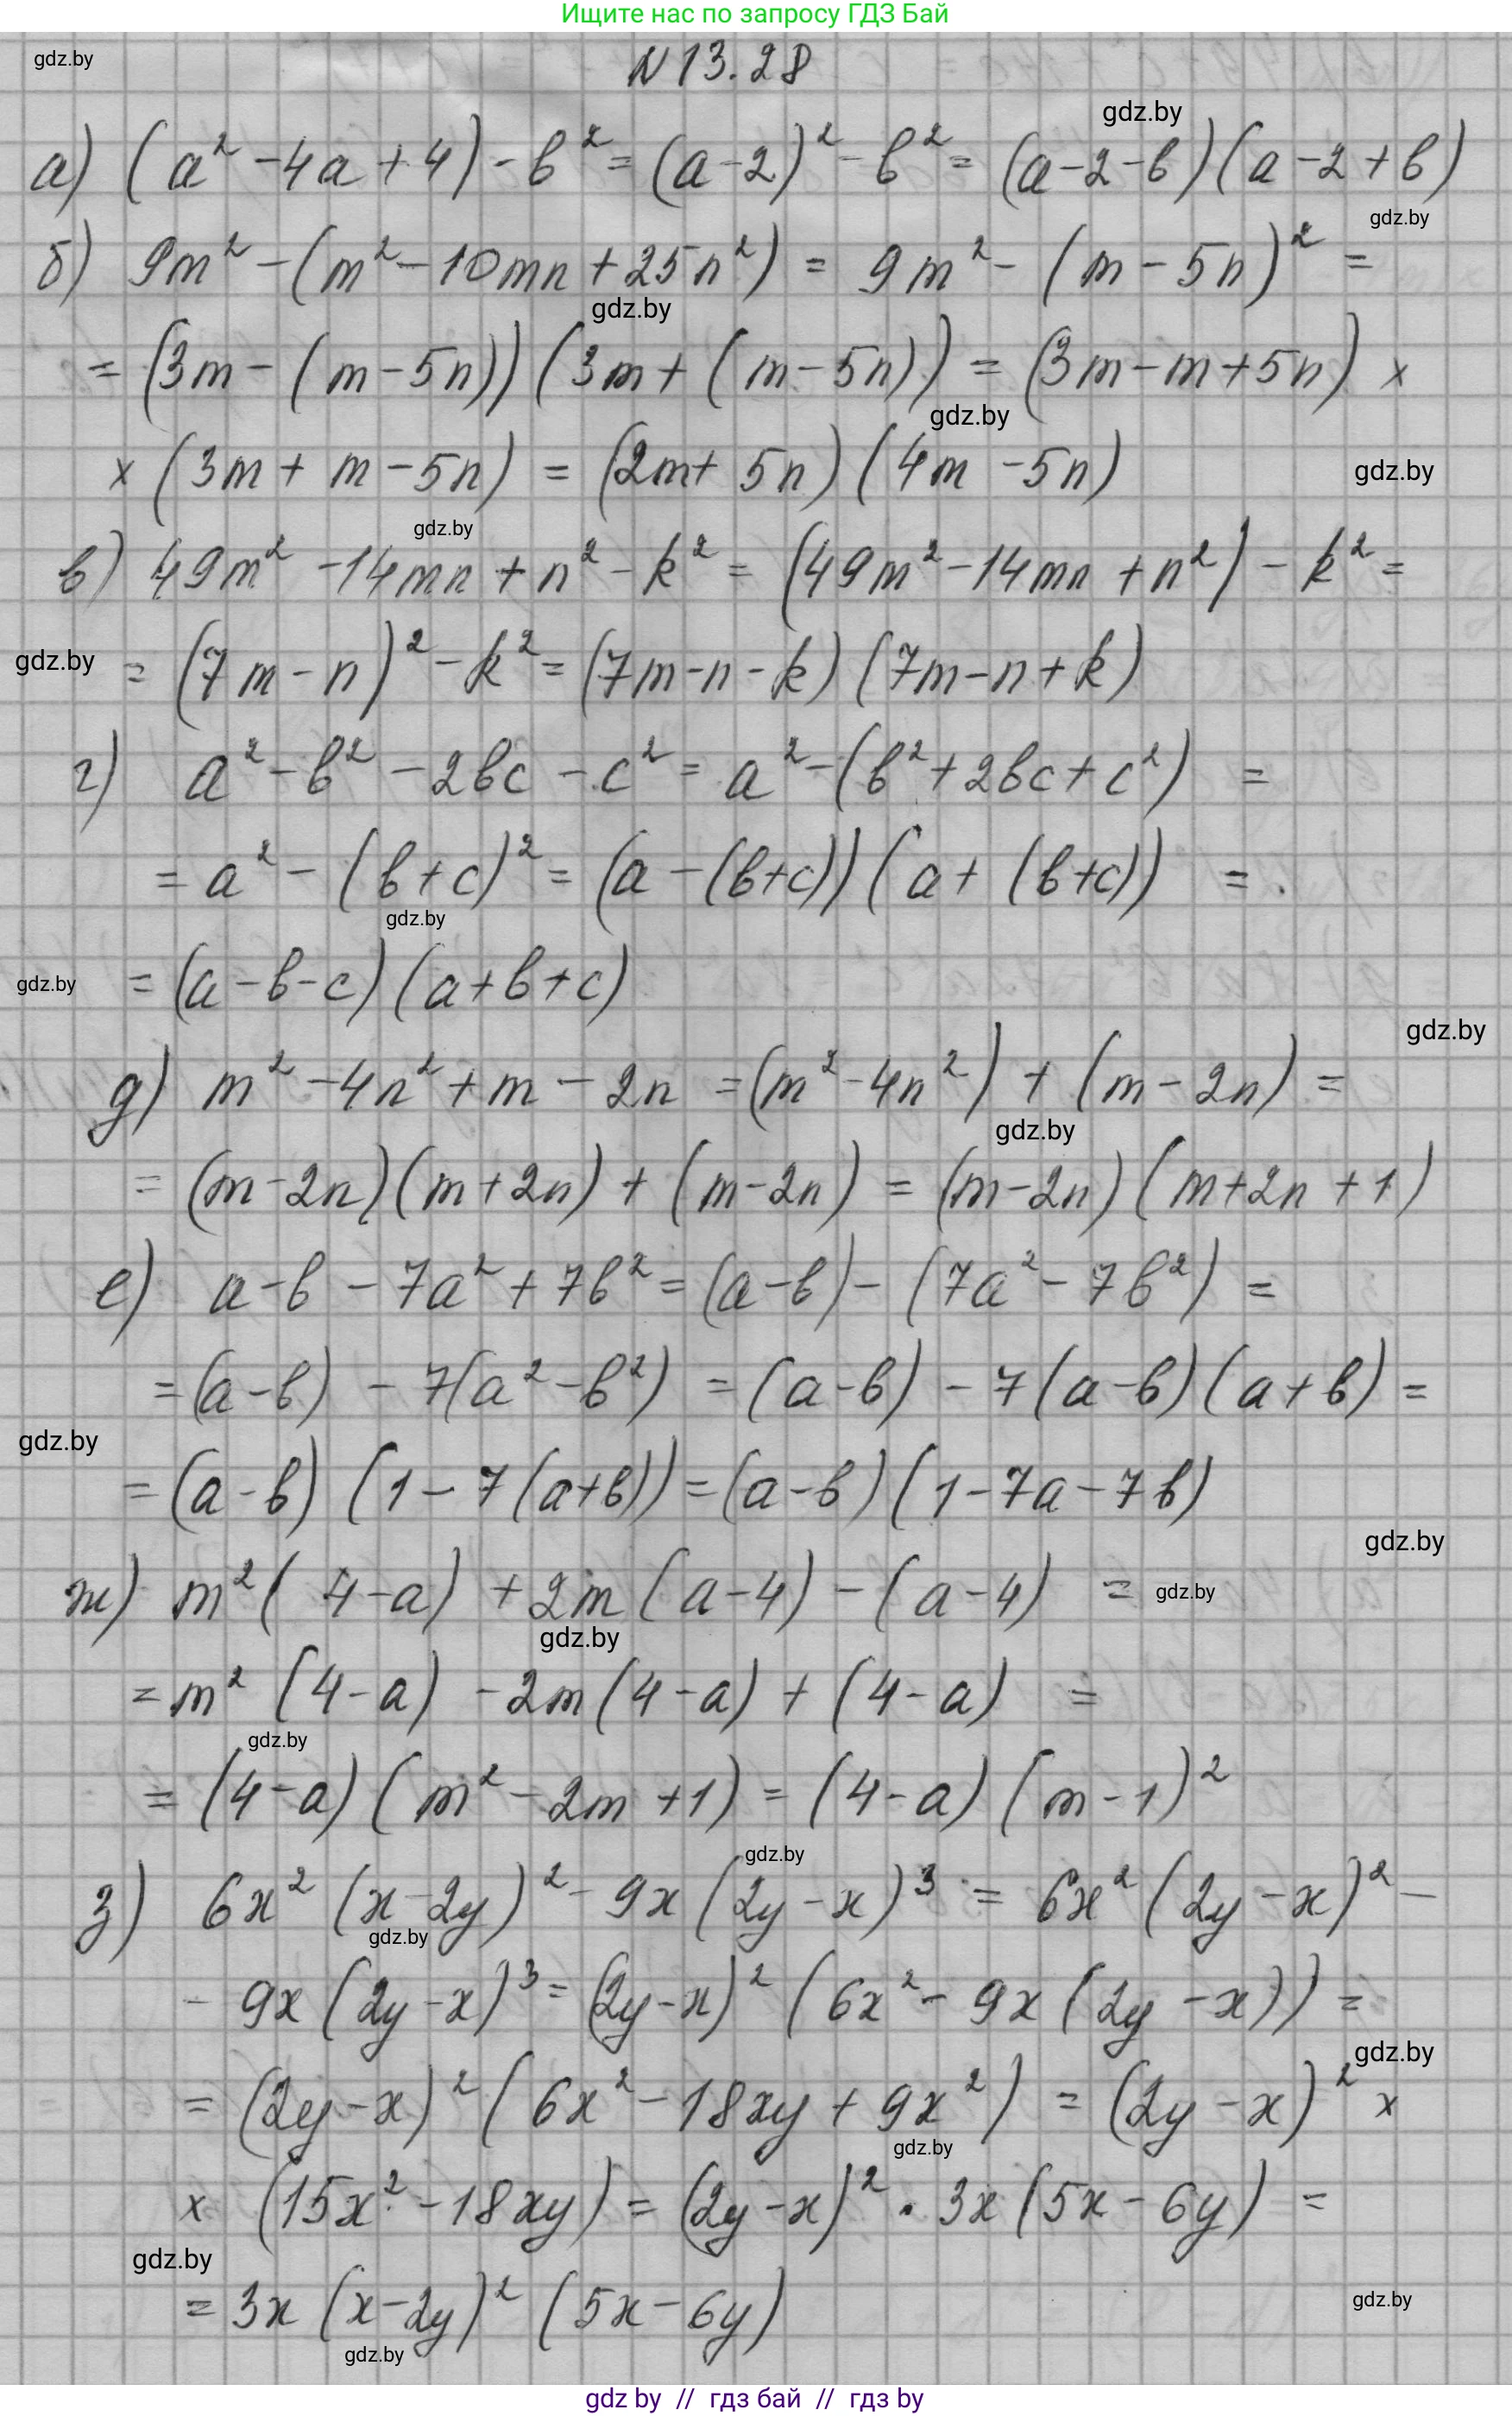 Ищите нас по запросу ГДЗ Бай
gdz.by
N 13.28
gdz.by
а) (a² - 4a + 4) - b² = (a - 2)² - b² = (a - 2 - b)(a - 2 + b)
gdz.by
б) 9m² - (m² - 10mn + 25n²) = 9m² - (m - 5n)² =
gdz.by
= (3m - (m - 5n))(3m + (m - 5n)) = (3m - m + 5n) ×
gdz.by
× (3m + m - 5n) = (2m + 5n)(4m - 5n)
gdz.by
gdz.by
в) 49m² - 14mn + n² - k² = (49m² - 14mn + n²) - k² =
= (7m - n)² - k² = (7m - n - k)(7m - n + k)
gdz.by
г) a² - b² - 2bc - c² = a² - (b² + 2bc + c²) =
= a² - (b + c)² = (a - (b+c))(a + (b+c)) =
gdz.by
= (a - b - c)(a + b + c)
gdz.by
gdz.by
д) m² - 4n² + m - 2n = (m² - 4n²) + (m - 2n) =
gdz.by
= (m - 2n)(m + 2n) + (m - 2n) = (m - 2n)(m + 2n + 1)
е) a - b - 7a² + 7b² = (a - b) - (7a² - 7b²) =
= (a - b) - 7(a² - b²) = (a - b) - 7(a - b)(a + b) =
gdz.by
= (a - b)(1 - 7(a+b)) = (a - b)(1 - 7a - 7b)
gdz.by
ж) m²(4 - a) + 2m(a - 4) - (a - 4) =
gdz.by
gdz.by
= m²(4 - a) - 2m(4 - a) + (4 - a) =
gdz.by
= (4 - a)(m² - 2m + 1) = (4 - a)(m - 1)²
gdz.by
з) 6x²(x - 2y)² - 9x(2y - x)³ = 6x²(2y - x)² -
gdz.by
- 9x(2y - x)³ = (2y - x)²(6x² - 9x(2y - x)) =
gdz.by
= (2y - x)²(6x² - 18xy + 9x²) = (2y - x)² ×
gdz.by
× (15x² - 18xy) = (2y - x)² · 3x(5x - 6y) =
gdz.by
= 3x(x - 2y)²(5x - 6y)
gdz.by
gdz.by
gdz by // гдз бай // гдз by